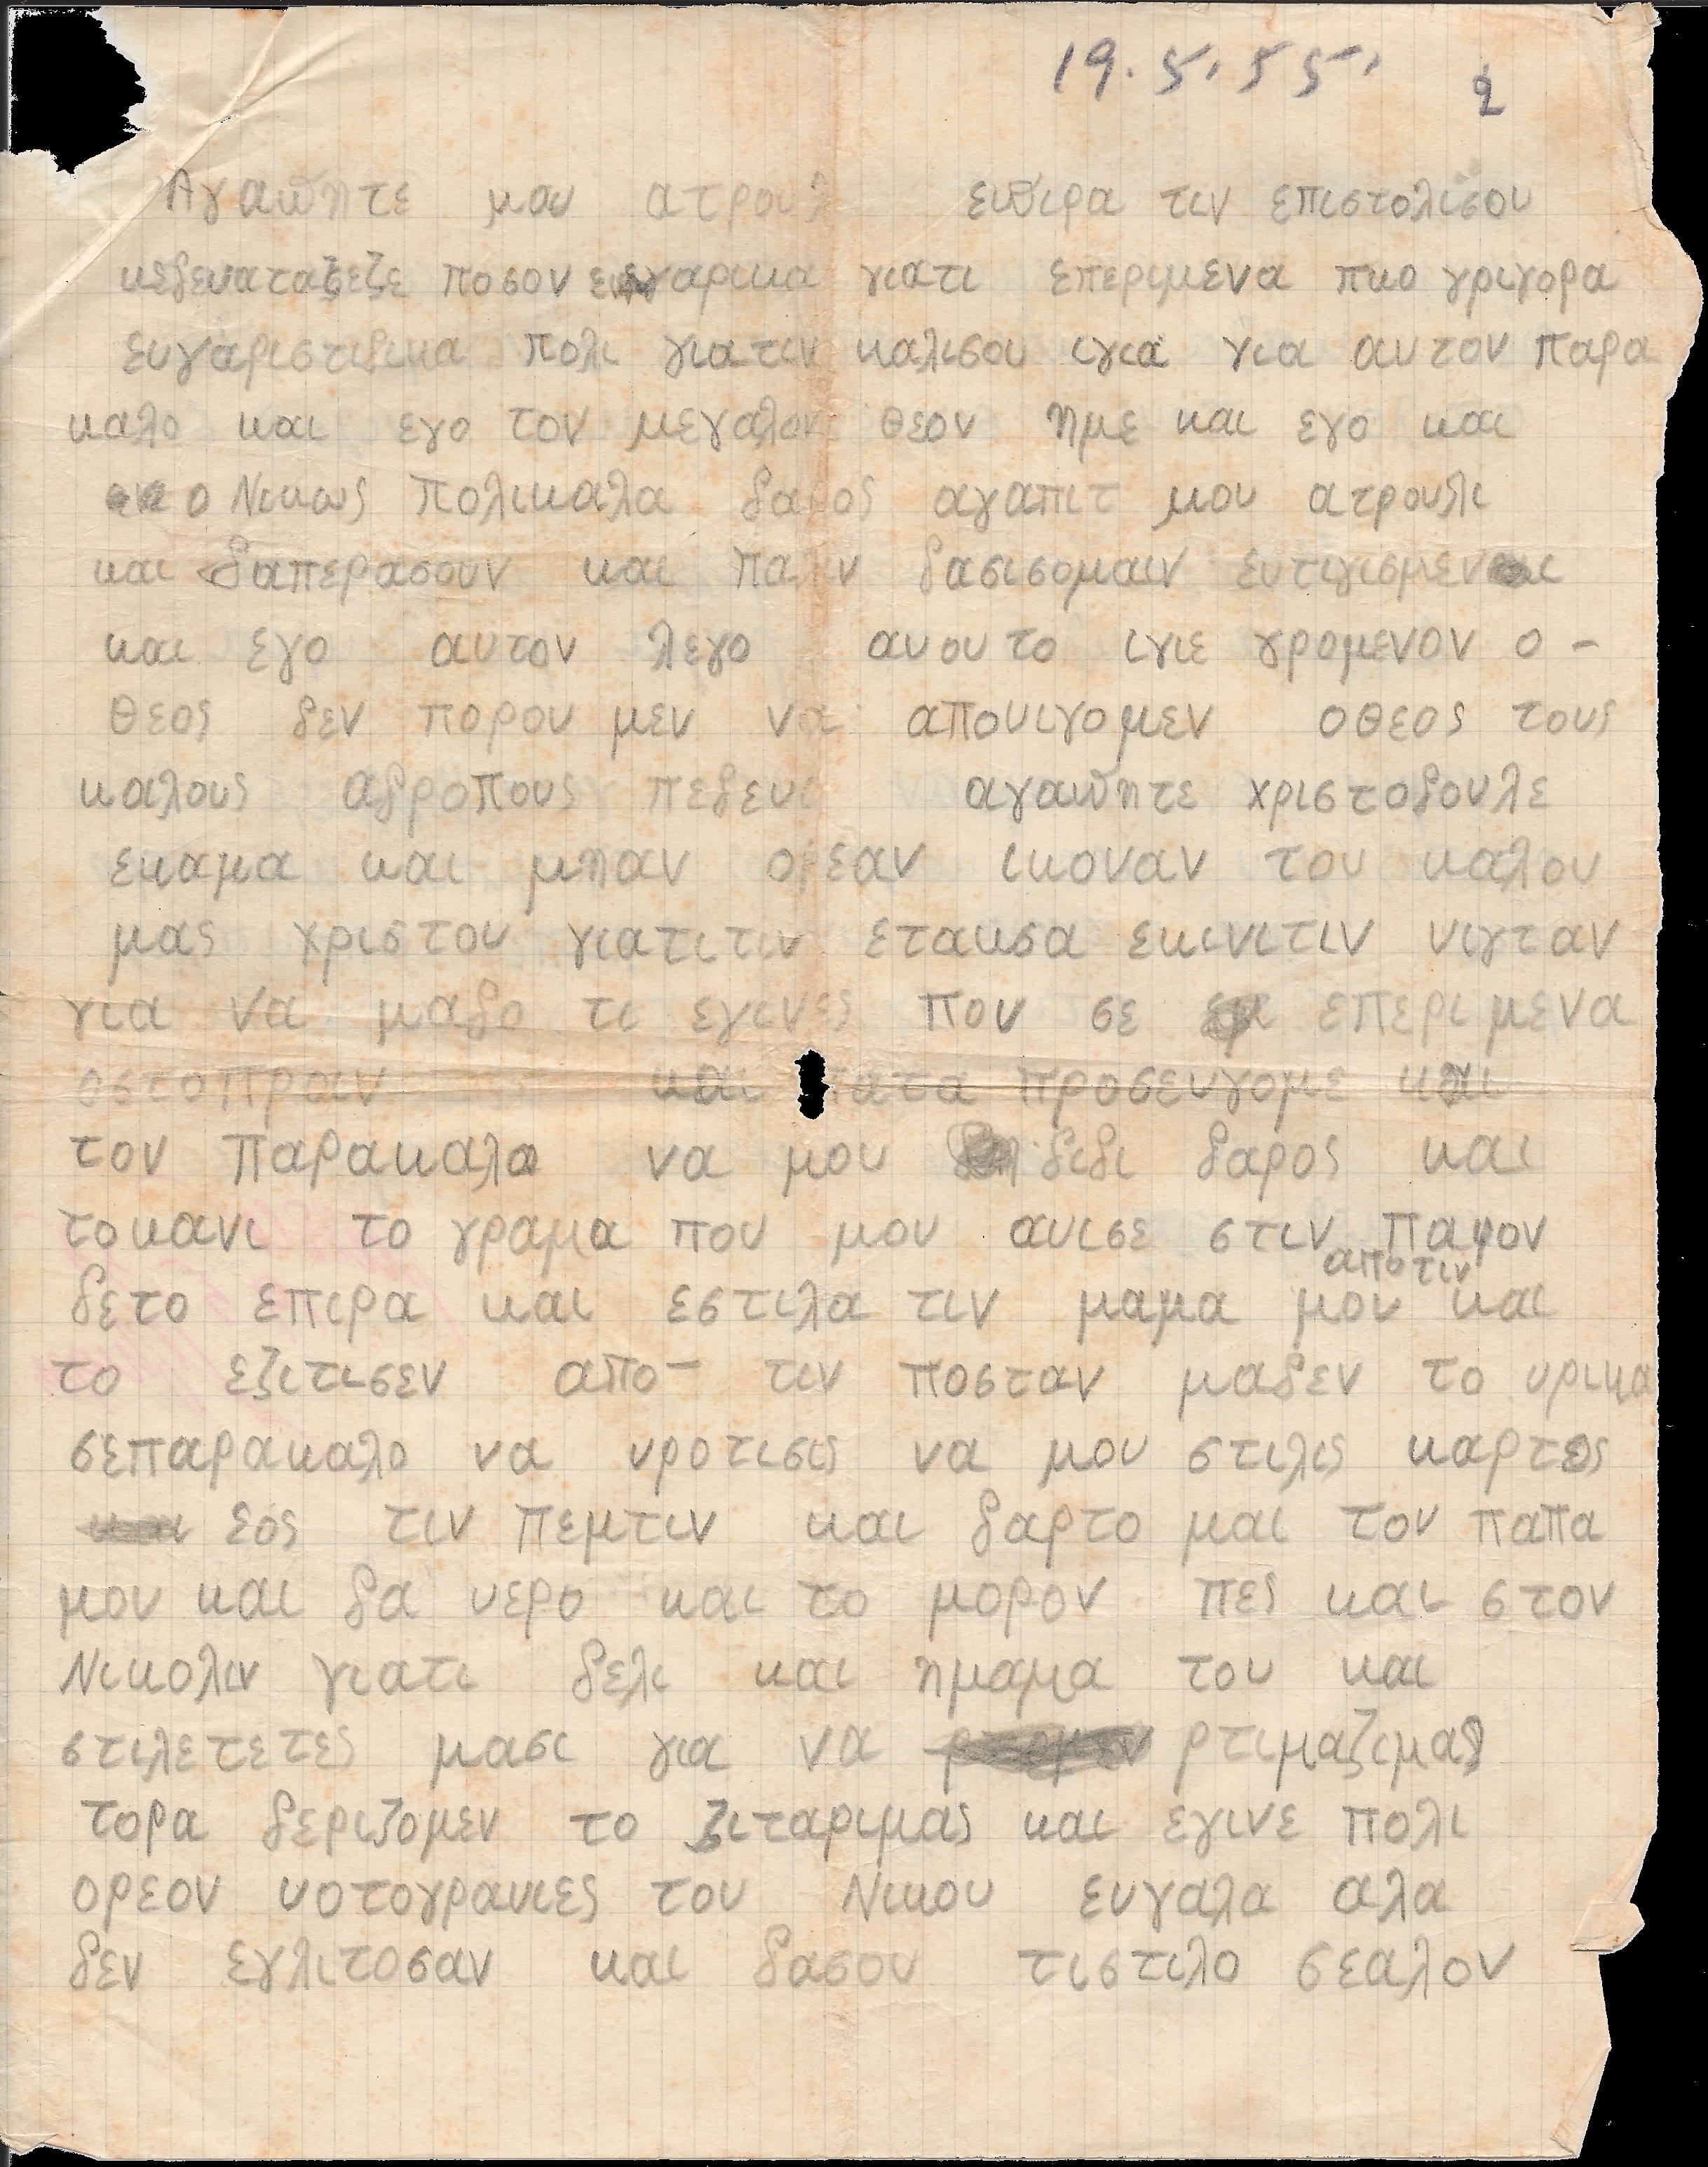 19.5.55. 2
Αγαπητε μου ατρουλ επιρα τιν επιστολισου
ποσον εγαρικα γιατι επεριμενα πιο γριγορα
ευγαριστιδικα πολι γιατιν καλισου ιγια για αυτον παρα
καλο και εγο τον μεγαλον θεον ημε και εγο και
ο Νικως πολικαλα δαρος αγαπιτ μου ατρουλι
και δαπερασουν και παλιν δασισομαιν ευτιγισμενι
και εγο αυτον λεγο ανουτο ιγιε γρομενον ο -
θεος δεν πορουμεν να απονιγομεν οθεος τους
καλους αδροπους πεδευι αγαπητε χριστοδουλε
εκαμα και μηαν ορεαν ικοναν του καλου
μας χριστου γιατιτιν ετακσα εκινιτιν νιγταν
για να μαδο τι εγινες που σε επεριμενα
οστοπροιν και προσευγομε και
τον παρακαλο να μου διδι δαρος και
τοκανι το γραμα που μου ανισε στιν Παφον
αποτιν
δετο επιρα και εστιλα τιν μαμα μου και
το εζιτισεν απο- τιν ποσταν μαδεν το υρικα
σεπαρακαλο να υροτισις να μου στιλις καρτες
εος τιν πεμτιν και δαρτο μαι τον παπα
μου και δα υερο και το μορον πες και στον
Νικολιν γιατι δελι και ημαμα του και
στιλετετες μασι για να ρτιμαζιμας
τορα δεριζομεν το ζιταριμας και εγινε πολι
ορεον υοτογρανιες του Νικου ευγαλα αλα
δεν εγλιτοσαν και δασου τιστιλο σεαλον